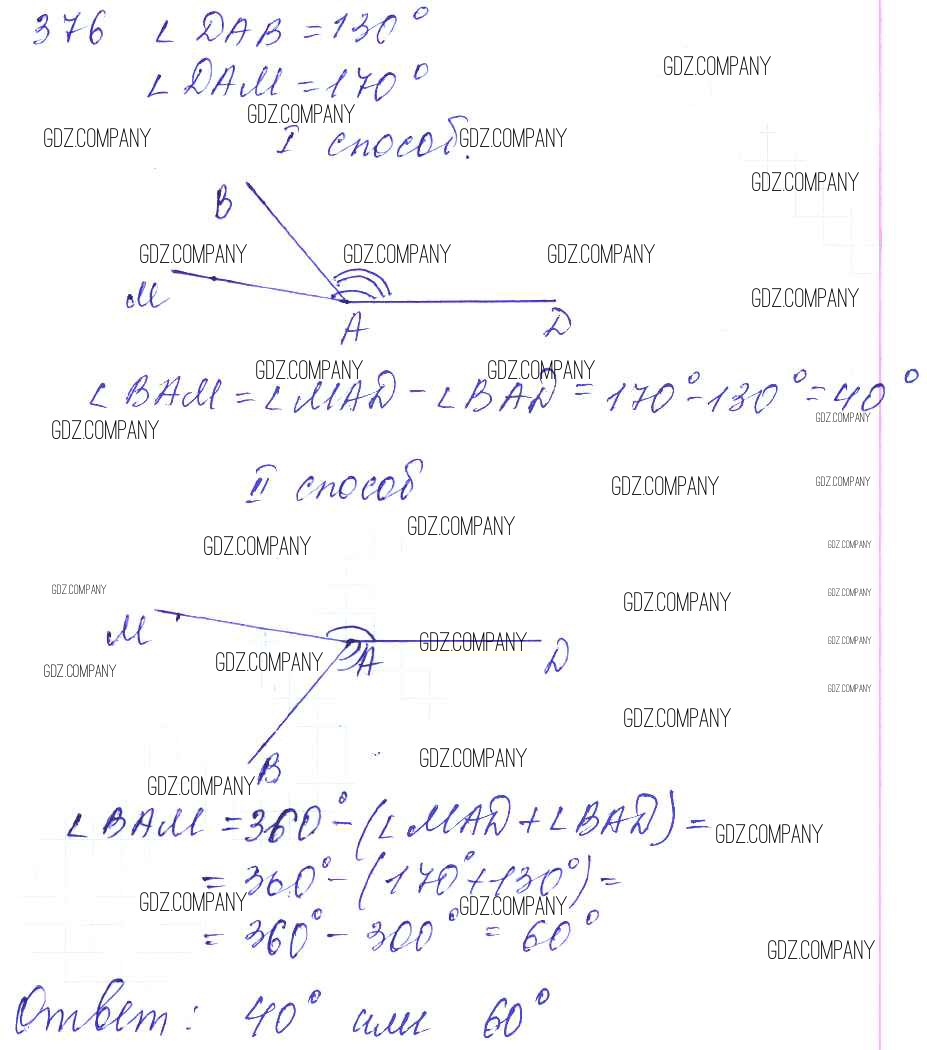 376 ∠ DAB = 130°
∠ DAM = 170°
GDZ.COMPANY
GDZ.COMPANY
GDZ.COMPANY
I способ.
GDZ.COMPANY
GDZ.COMPANY
B
GDZ.COMPANY
GDZ.COMPANY
GDZ.COMPANY
M
GDZ.COMPANY
A
D
GDZ.COMPANY
GDZ.COMPANY
∠ BAM = ∠ MAD - ∠ BAD = 170° - 130° = 40°
GDZ.COMPANY
GDZ.COMPANY
II способ
GDZ.COMPANY
GDZ.COMPANY
GDZ.COMPANY
GDZ.COMPANY
GDZ.COMPANY
GDZ.COMPANY
GDZ.COMPANY
GDZ.COMPANY
M
GDZ.COMPANY
GDZ.COMPANY
GDZ.COMPANY
A
D
GDZ.COMPANY
GDZ.COMPANY
GDZ.COMPANY
GDZ.COMPANY
GDZ.COMPANY
B
GDZ.COMPANY
∠ BAM = 360° - (∠ MAD + ∠ BAD) =
GDZ.COMPANY
= 360° - (170° + 130°) =
GDZ.COMPANY
GDZ.COMPANY
= 360° - 300° = 60°
GDZ.COMPANY
Ответ: 40° или 60°